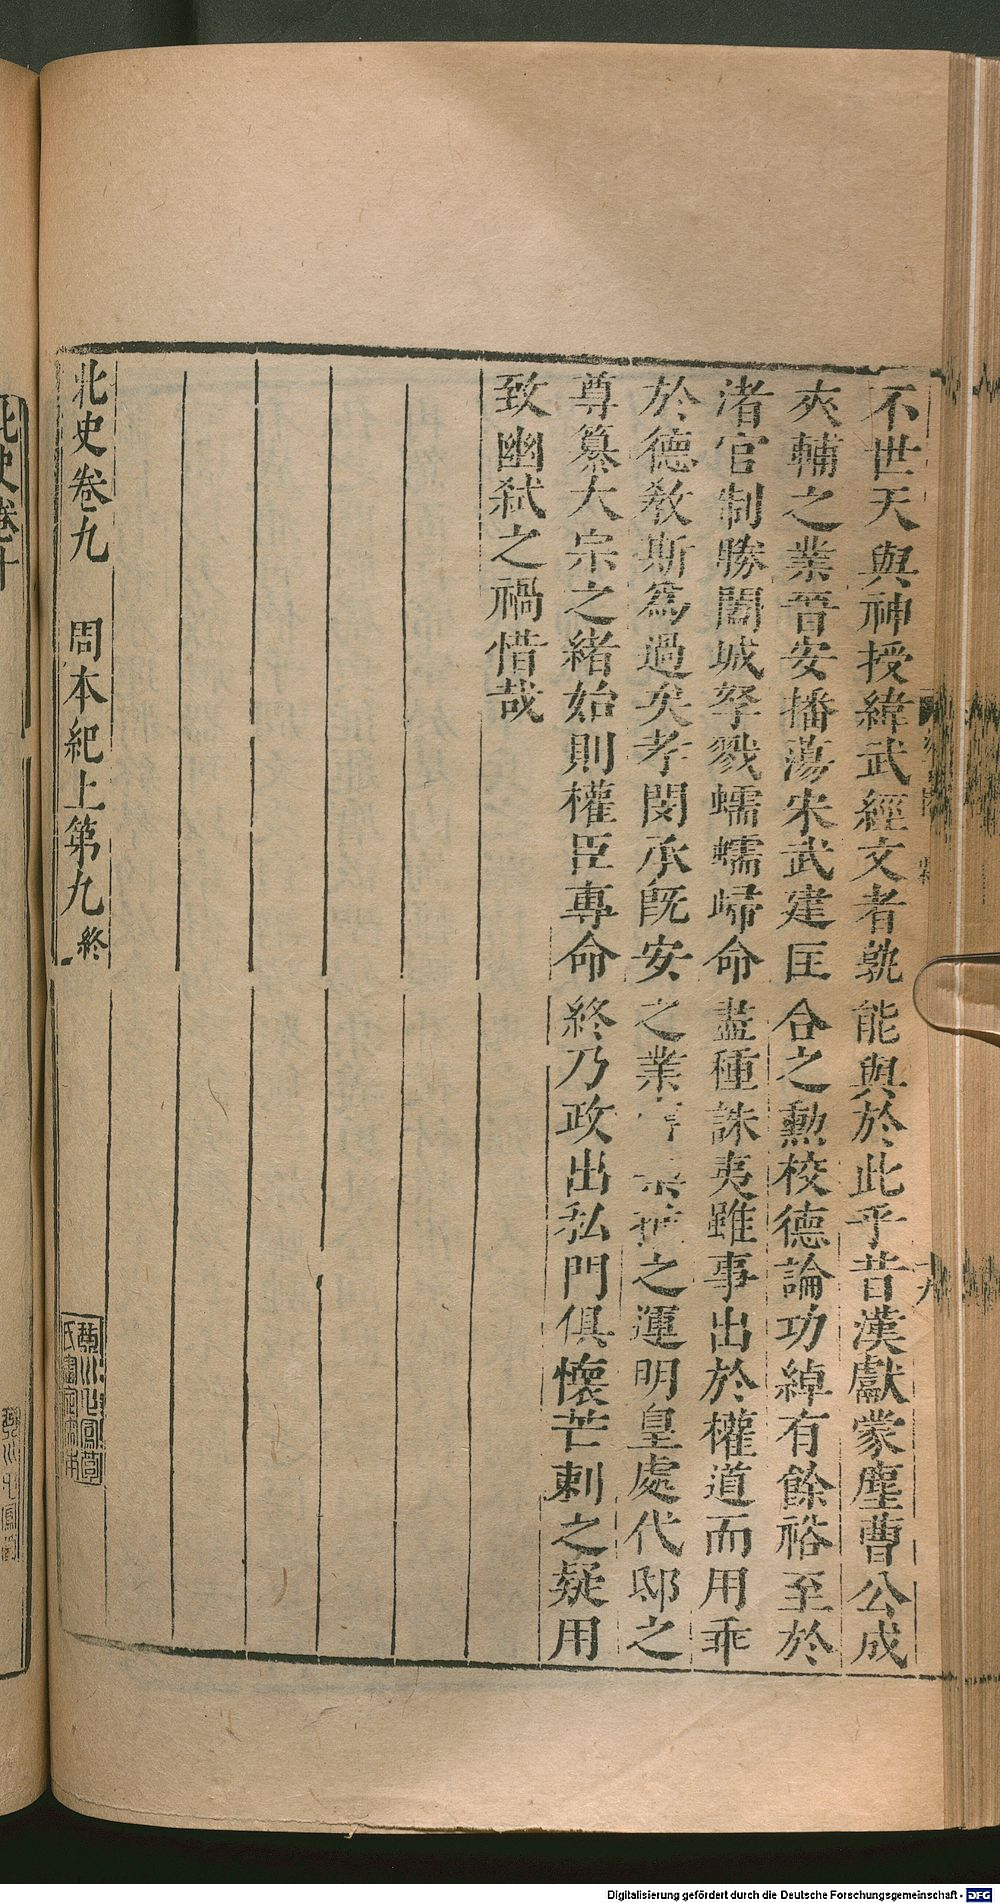 不世天與神授緯武經文者孰能與於此乎昔漢獻蒙塵曹公成
夾輔之業晉安播蕩宋武建匡合之勲校德論功綽有餘裕至於
渚宮制勝闔城孥戮蠕蠕歸命盡種誅夷雖事出於權道而用乖
於德教斯爲過矣孝閔承旣安之業之運明皇處代邸之
尊纂大宗之緒始則權臣專命終乃政出私門俱懷芒刺之疑用
致幽弑之禍惜哉
北史卷九 周本紀上第九終
北史卷十
Digitalisierung gefördert durch die Deutsche Forschungsgemeinschaft - DFG